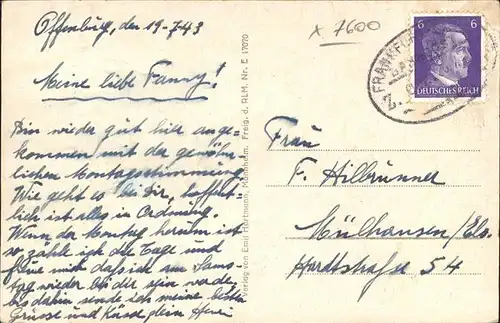 Offenburg, den 19-7 43
x 7600
Meine liebe Fanny!
Bin wieder gut hier ange-
kommen mit der gewöhn-
lichen Montagsstimmung
Wie geht es bei Dir, hoffent-
lich ist alles in Ordnung.
Wenn der Montag herum ist
so zähle ich die Tage und
freue mich dass ich am Sams-
tag wieder bei dir sein werde,
bis dahin sende ich meine besten
Grüsse und Küsse dein Henri
Verlag von Emil Hartmann, Mannheim. Freig. d. RLM. Nr. E 17070
FRANKFUR
BAHN
6 6
DEUTSCHES REICH
Frau
F. Hilbrunner
Mülhausen/Els.
Hardtstraße 54